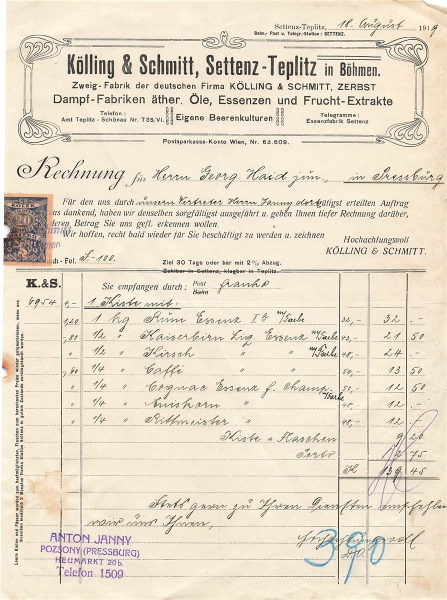 Settenz-Teplitz, 18. August 1919
Bahn-, Post u. Telegr.-Station: SETTENZ.
Kölling & Schmitt, Settenz-Teplitz in Böhmen.
Zweig-Fabrik der deutschen Firma KÖLLING & SCHMITT, ZERBST
Dampf-Fabriken äther. Öle, Essenzen und Frucht-Extrakte
Telephon:
Amt Teplitz-Schönau Nr. 735/VI.
Eigene Beerenkulturen
Telegramme:
Essenzfabrik Settenz
Postsparkassa-Konto Wien, Nr. 63.609.
Rechnung für Herrn Georg Haid jun., in Pressburg
Für den uns durch unseren Vertreter Herrn Janny dort gütigst erteilten Auftrag
uns dankend, haben wir denselben sorgfältigst ausgeführt u. geben Ihnen tiefer Rechnung darüber,
deren Betrag Sie uns gefl. erkennen wollen.
Wir hoffen, recht bald wieder für Sie beschäftigt zu werden u. zeichnen
Hochachtungsvoll
KÖLLING & SCHMITT.
Fol. J-100.
Ziel 30 Tage oder bar mit 2% Abzug.
Zahlbar in Settenz, klagbar in Teplitz.
K.&S. Sie empfangen durch: Post Bahn franko
6954 1 Kiste mit:
1,20 1 kg Rum Essenz m/Farbe 32,- 32 -
,80 1/2 " Kaiserbirn Liq Essenz m/Farbe 43,- 21 50
1/2 " Kirsch " " m/Farbe 48,- 24 -
,60 1/4 " Caffé " " 13 50
1/4 " Cognac Essenz f. Champ. m/Farbe 50,- 12 50
1/4 " " 48,- 12 -
1/4 " Rittmeister " 48,- 12 -
Kiste u Flaschen 9 20
Porto 2 75
K 139 45
Stets gern zu Ihren Diensten empfehlen
wir uns Ihnen,
Hochachtungsvoll
D.O.
390
ANTON JANNY
POZSONY (PRESSBURG)
HEUMARKT 20b.
Telefon 1509